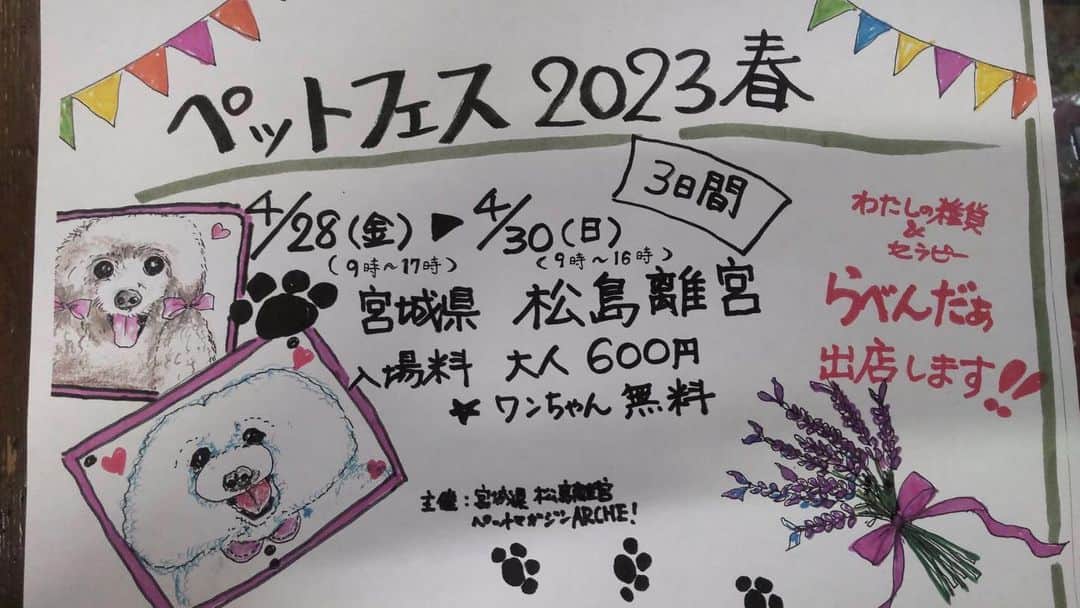 ペットフェス 2023 春
3日間
4/28(金)▶4/30(日)
(9時～17時) (9時～16時)
宮城県 松島離宮
入場料 大人 600円
★ワンちゃん 無料
わたしの雑貨
&
セラピー
らべんだぁ
出店します!!
主催:宮城県 松島離宮
ペットマガジンARCHE!